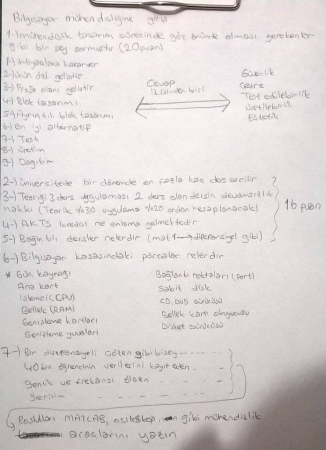 Bilgisayar mühendisliğine giriş
1-) mühendislik tasarım sürecinde göz önünde olması gerekenler
gibi bir şey sormuştu (20 puan)
1-) ihtiyaçlara karar ver
2-) ürün dal geliştir
3-) Proje planı geliştir
4-) Blok tasarımı
5-) Ayrıntılı blok tasarımı
6-) en iyi alternatif
7-) Test
8-) üretim
9-) Dağıtım
Cevap
ikisinden biri
Güvenlik
çevre
Test edilebilirlik
üretilebilirlik
Estetik
2-) üniversitede bir dönemde en fazla kaç ders seçilir
3-) Teoriği 3 ders uygulaması 2 ders olan dersin devamsızlık
hakkı (Teorik %30 uygulama %20 ordan hesaplanacak)
4-) AKTS kredisi ne anlama gelmektedir
5-) Bağıntılı dersler nelerdir (mat1 → diferansiyel gibi)
16 puan
6-) Bilgisayar kasasındaki parçalar nelerdir
* Güç kaynağı
Ana kart
işlemci (CPU)
Bellek (RAM)
Genişleme kartları
Genişleme yuvaları
Bağlantı noktaları (port)
Sabit disk
CD, DVD sürücüsü
Bellek kartı okuyucusu
Disket sürücüsü
7-) Bir diferansiyeli çözen gibi bişey
40 bin öğrencinin verilerini kayıt eden
genlik ve frekansı ölçen
Gerilim
Boşlukları MATLAB, osiloskop, gibi mühendislik
araçlarını yazın